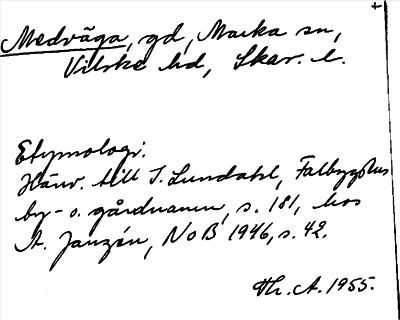 Medväga, gd, Marka sn,
Vilske hd, Skar. l.
Etymologi.
Hänv. till I. Lundahl, Falbygdens
by- o. gårdnamn, s. 181, hos
A. Janzén, NoB 1946, s. 42.
Th. A. 1955.